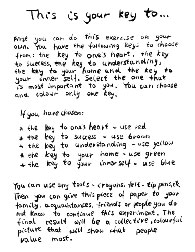 This is your key to...
And you can do this exercise on your
own. You have the following keys to choose
from: the key to one's heart, the key
to success, the key to understanding,
the key to your home and the key to
your inner self. Select the one that
is most important to you. You can choose
and colour only one key.
If you have chosen:
the key to one's heart - use red
the key to success - use brown
the key to understanding - use yellow
the key to your home - use green
the key to your innerself - use blue
You can use any tools - crayons, felt-tip pens, etc.
Then you can give this piece of paper to your
family, acquaintances, friends or people you do
not know to continue this experiment. The
final result will be a collective, colourful
picture that will show what people
value most.